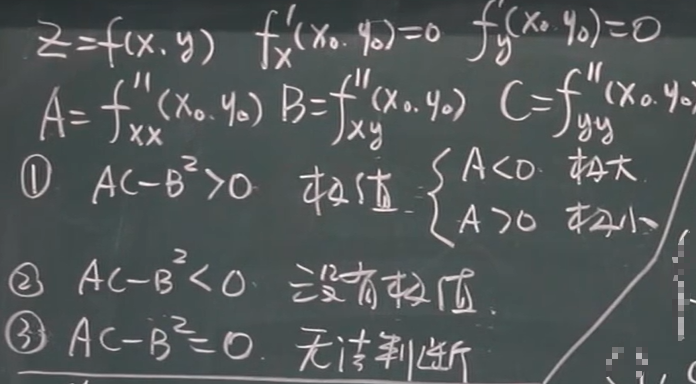 z=f(x,y) f'x(x₀,y₀)=0 f'y(x₀,y₀)=0
A=f''xx(x₀,y₀) B=f''xy(x₀,y₀) C=f''yy(x₀,y₀
① AC-B²>0 极值 { A<0 极大
A>0 极小
② AC-B²<0. 没有极值.
③ AC-B²=0. 无法判断